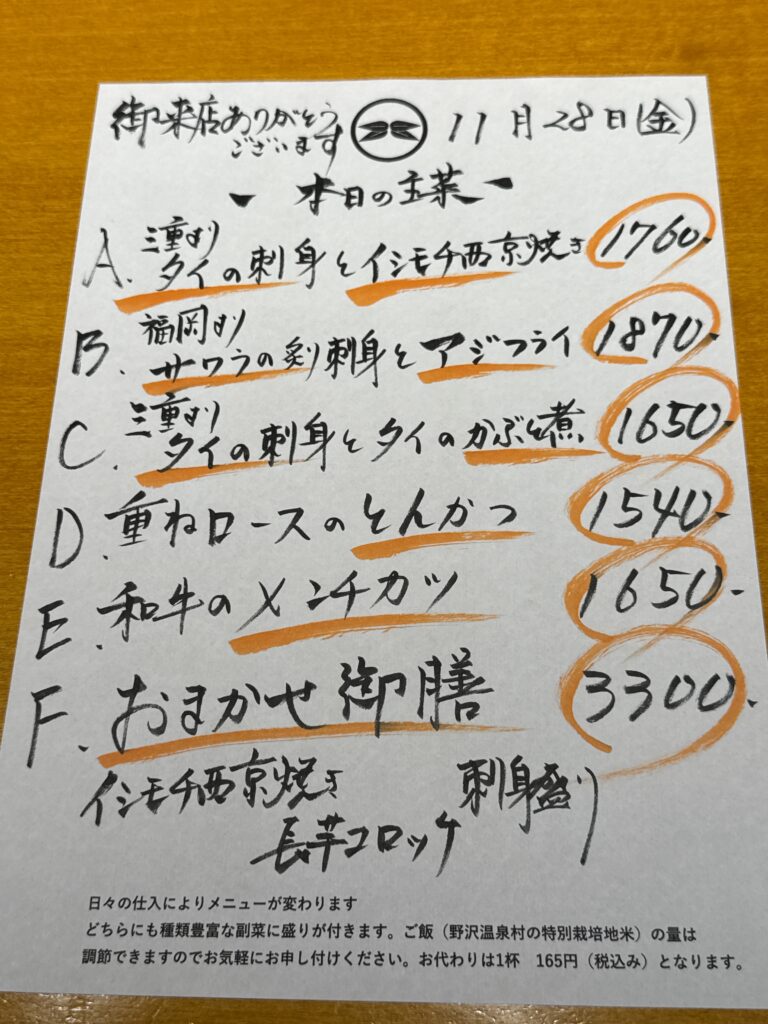 御来店ありがとう
ございます
11月28日(金)
本日の主菜
A. 三重より
タイの刺身とイシモチ西京焼き 1760-
B. 福岡より
サワラの炙り刺身とアジフライ 1870-
C. 三重より
タイの刺身とタイのかぶと煮 1650-
D. 重ねロースのとんかつ 1540-
E. 和牛のメンチカツ 1650-
F. おまかせ御膳 3300-
イシモチ西京焼き 刺身盛り
長芋コロッケ
日々の仕入によりメニューが変わります
どちらにも種類豊富な副菜に盛りが付きます。ご飯（野沢温泉村の特別栽培地米）の量は
調節できますのでお気軽にお申し付けください。お代わりは1杯 165円（税込み）となります。